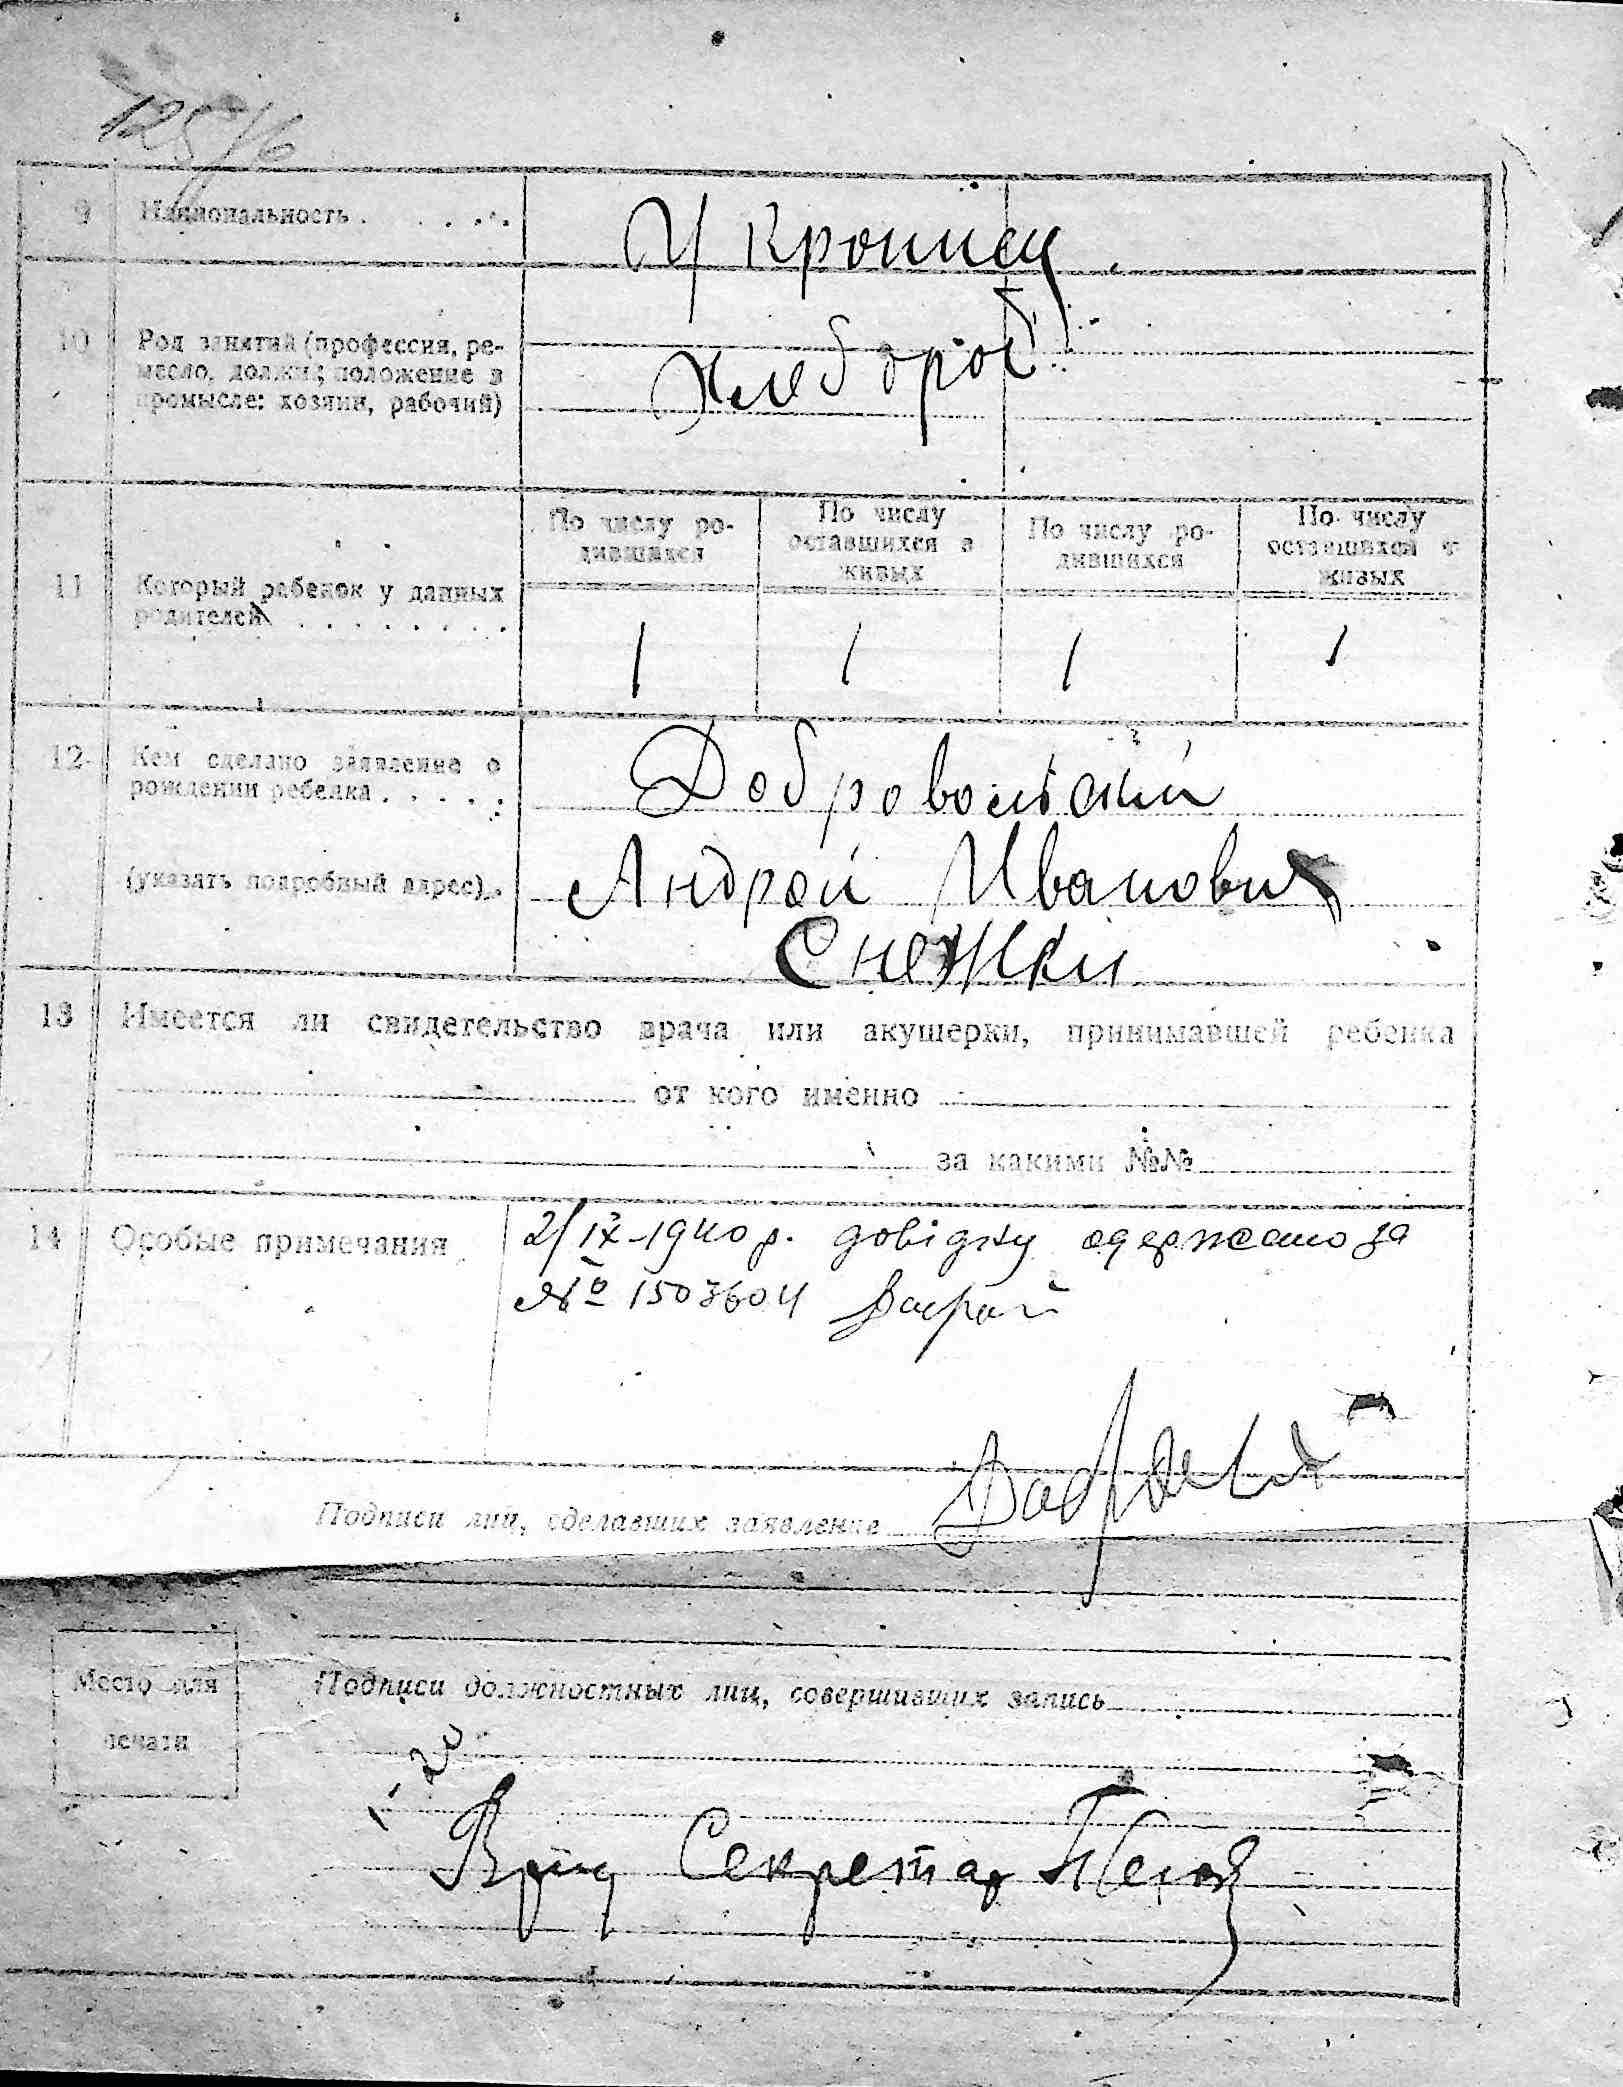 125/16
9 Национальность
Украинец
10 Род занятий (профессия, ре-
месло, должн.; положение в
промысле: хозяин, рабочий)
Хлебороб
11 Который ребенок у данных
родителей
По числу ро-
дившихся
По числу
оставшихся в
живых
По числу ро-
дившихся
По числу
оставшихся в
живых
1 1 1 1
12 Кем сделано заявление о
рождении ребенка
(указать подробный адрес)
Добровольский
Андрей Иванович
Снежки
13 Имеется ли свидетельство врача или акушерки, принимавшей ребенка
от кого именно
за какими №№
14 Особые примечания
2/IX-1940 р. довідку одержано за
№ 1503604
Подписи лиц, сделавших заявление
Место для
печати
Подписи должностных лиц, совершивших запись
Врид Секретар